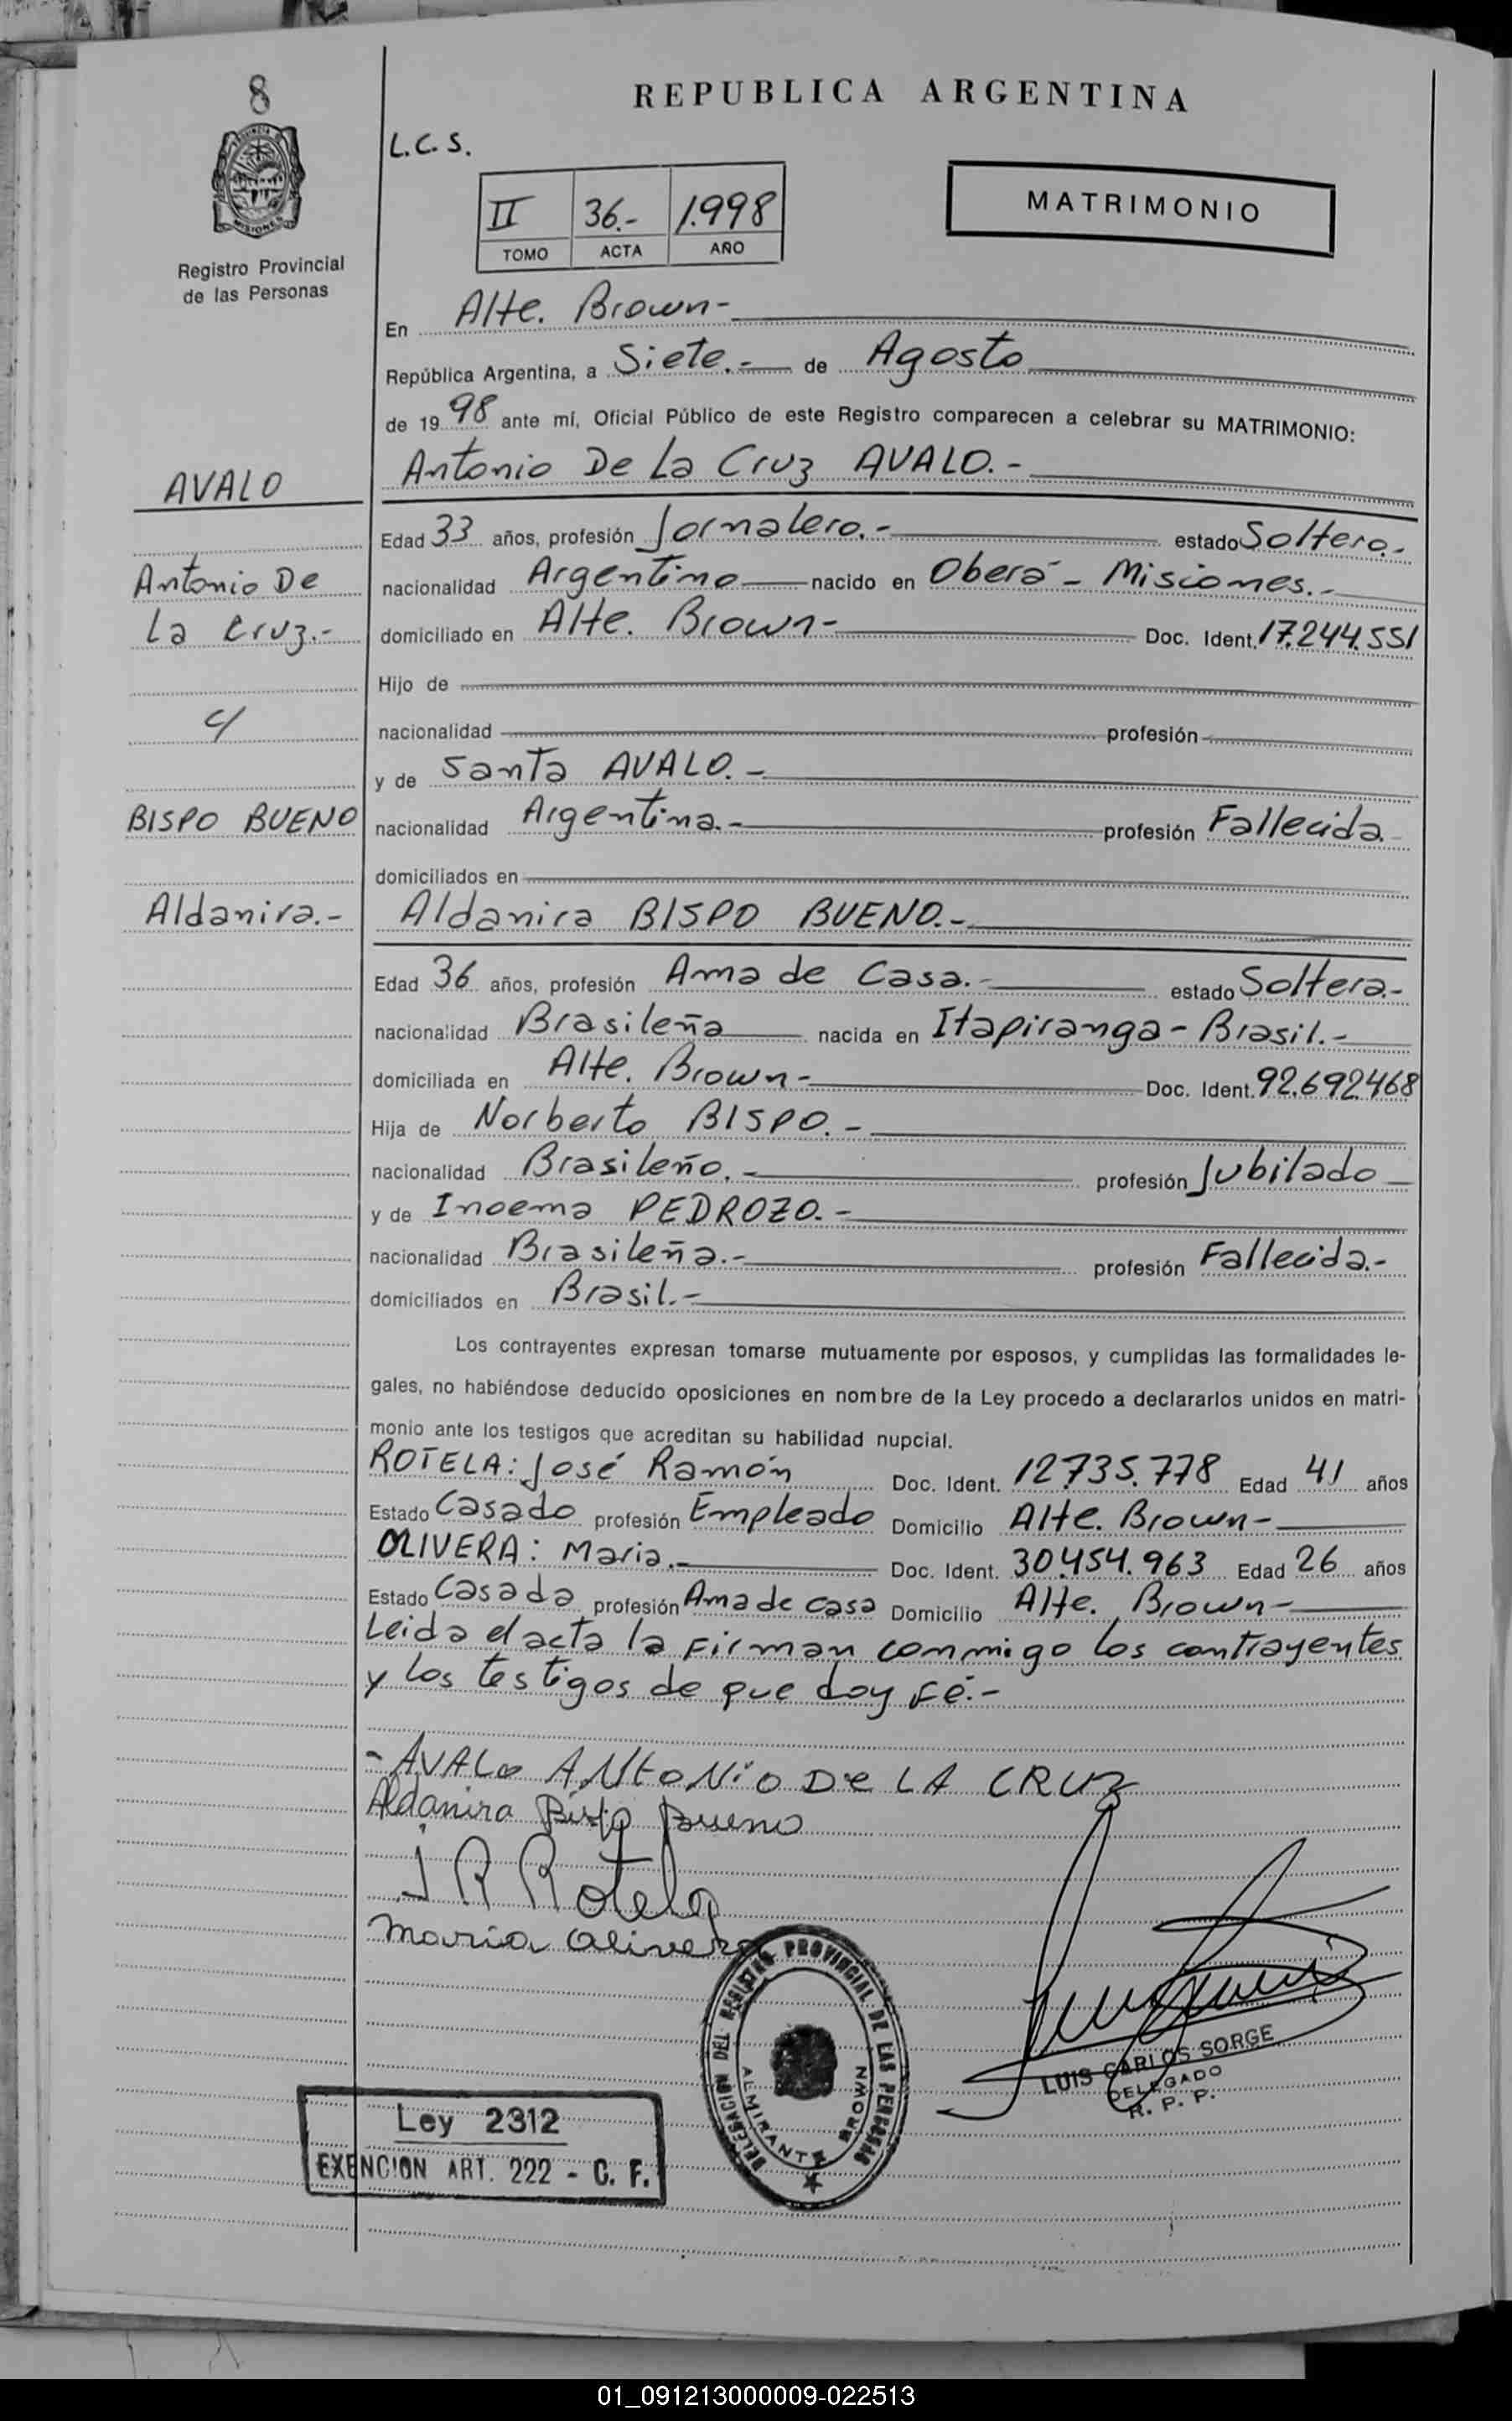 8
REPUBLICA ARGENTINA
L.C.S.
MISIONES
II 36.- 1.998
TOMO ACTA AÑO
MATRIMONIO
Registro Provincial
de las Personas
En Alte. Brown-
República Argentina, a Siete.- de Agosto
de 1998 ante mí, Oficial Público de este Registro comparecen a celebrar su MATRIMONIO:
AVALO
Antonio De La Cruz AVALO.-
Edad 33 años, profesión Jornalero.- estado Soltero.-
Antonio De
nacionalidad Argentino nacido en Oberá - Misiones.-
La Cruz.-
domiciliado en Alte. Brown- Doc. Ident. 17.244.551
Hijo de
c/
nacionalidad profesión
y de Santa AVALO.-
BISPO BUENO
nacionalidad Argentina.- profesión Fallecida.-
domiciliados en
Aldanira.-
Aldanira BISPO BUENO.-
Edad 36 años, profesión Ama de Casa.- estado Soltera.-
nacionalidad Brasileña nacida en Itapiranga - Brasil.-
domiciliada en Alte. Brown- Doc. Ident. 92.692.468
Hija de Norberto BISPO.-
nacionalidad Brasileño.- profesión Jubilado
y de Inoema PEDROZO.-
nacionalidad Brasileña.- profesión Fallecida.-
domiciliados en Brasil.-
Los contrayentes expresan tomarse mutuamente por esposos, y cumplidas las formalidades le-
gales, no habiéndose deducido oposiciones en nombre de la Ley procedo a declararlos unidos en matri-
monio ante los testigos que acreditan su habilidad nupcial.
ROTELA: José Ramón Doc. Ident. 12.735.778 Edad 41 años
Estado Casado profesión Empleado Domicilio Alte. Brown-
OLIVERA: Maria.- Doc. Ident. 30.454.963 Edad 26 años
Estado Casada profesión Ama de casa Domicilio Alte. Brown-
Leida el acta la Firman commigo los contrayentes
y los testigos de que doy Fé.-
- AVALO ANtoNio De LA CRUZ
Aldanira Bispo Bueno
J R Rotela
maria olivera
DELEGACION DEL REGISTRO PROVINCIAL DE LAS PERSONAS
ALMIRANTE BROWN
LUIS CARLOS SORGE
DELEGADO
R. P. P.
Ley 2312
EXENCION ART. 222 - C. F.
01_091213000009-022513